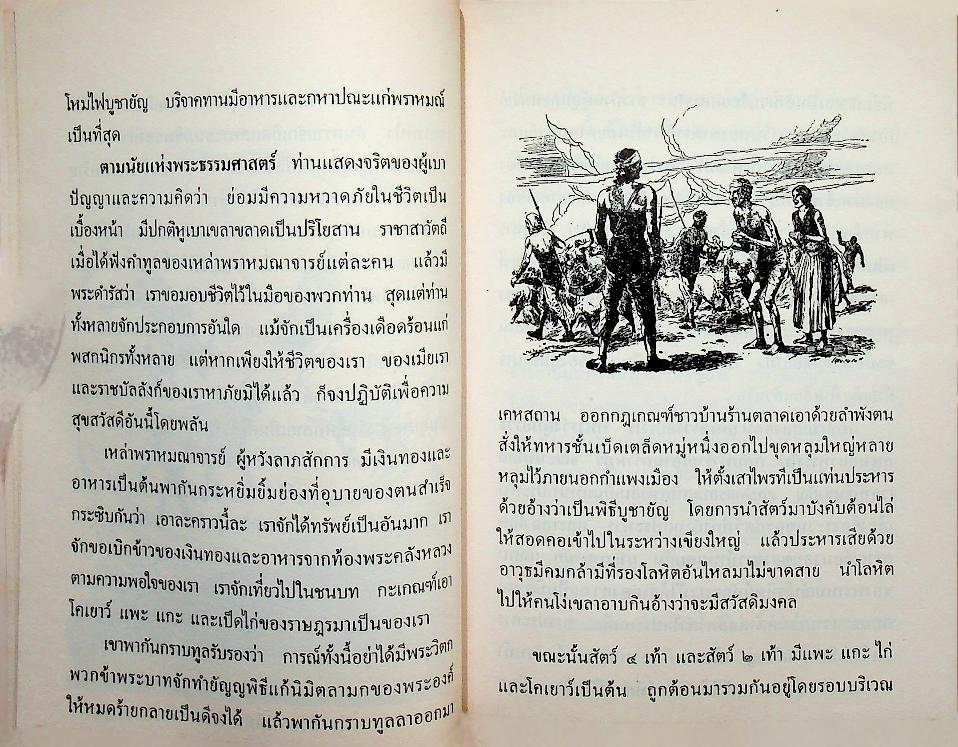 โหมไฟบูชายัญ บริจาคทานมีอาหารและกหาปณะแก่พราหมณ์
เป็นที่สุด
ตามนัยแห่งพระธรรมศาสตร์ ท่านแสดงจริตของผู้เบา
ปัญญาและความคิดว่า ย่อมมีความหวาดภัยในชีวิตเป็น
เบื้องหน้า มีปกติหูเบาเขลาขลาดเป็นปริโยสาน ราชาสาวัตถี
เมื่อได้ฟังคำทูลของเหล่าพราหมณาจารย์แต่ละคน แล้วมี
พระดำรัสว่า เราขอมอบชีวิตไว้ในมือของพวกท่าน สุดแต่ท่าน
ทั้งหลายจักประกอบการอันใด แม้จักเป็นเครื่องเดือดร้อนแก่
พสกนิกรทั้งหลาย แต่หากเพียงให้ชีวิตของเรา ของเมียเรา
และราชบัลลังก์ของเราหาภัยมิได้แล้ว ก็จงปฏิบัติเพื่อความ
สุขสวัสดีอันนี้โดยพลัน
เหล่าพราหมณาจารย์ ผู้หวังลาภสักการ มีเงินทองและ
อาหารเป็นต้นพากันกระหยิ่มยิ้มย่องที่อุบายของตนสำเร็จ
กระซิบกันว่า เอาละคราวนี้ละ เราจักได้ทรัพย์เป็นอันมาก เรา
จักขอเบิกข้าวของเงินทองและอาหารจากท้องพระคลังหลวง
ตามความพอใจของเรา เราจักเที่ยวไปในชนบท กะเกณฑ์เอา
โคเยาว์ แพะ แกะ และเป็ดไก่ของราษฎรมาเป็นของเรา
เขาพากันกราบทูลรับรองว่า การณ์ทั้งนี้อย่าได้มีพระวิตก
พวกข้าพระบาทจักทำยัญญพิธีแก้นิมิตลามกของพระองค์
ให้หมดร้ายกลายเป็นดีจงได้ แล้วพากันกราบทูลลาออกมา
เคหสถาน ออกกฎเกณฑ์ชาวบ้านร้านตลาดเอาด้วยลำพังตน
สั่งให้ทหารชั้นเบ็ดเตล็ดหมู่หนึ่งออกไปขุดหลุมใหญ่หลาย
หลุมไว้ภายนอกกำแพงเมือง ให้ตั้งเสาไพรที่เป็นแท่นประหาร
ด้วยอ้างว่าเป็นพิธีบูชายัญ โดยการนำสัตว์มาบังคับต้อนไล่
ให้สอดคอเข้าไปในระหว่างเขียงใหญ่ แล้วประหารเสียด้วย
อาวุธมีคมกล้ามีที่รองโลหิตอันไหลมาไม่ขาดสาย นำโลหิต
ไปให้คนโง่เขลาอาบกินอ้างว่าจะมีสวัสดิมงคล
ขณะนั้นสัตว์ ๔ เท้า และสัตว์ ๒ เท้า มีแพะ แกะ ไก่
และโคเยาว์เป็นต้น ถูกต้อนมารวมกันอยู่โดยรอบบริเวณ